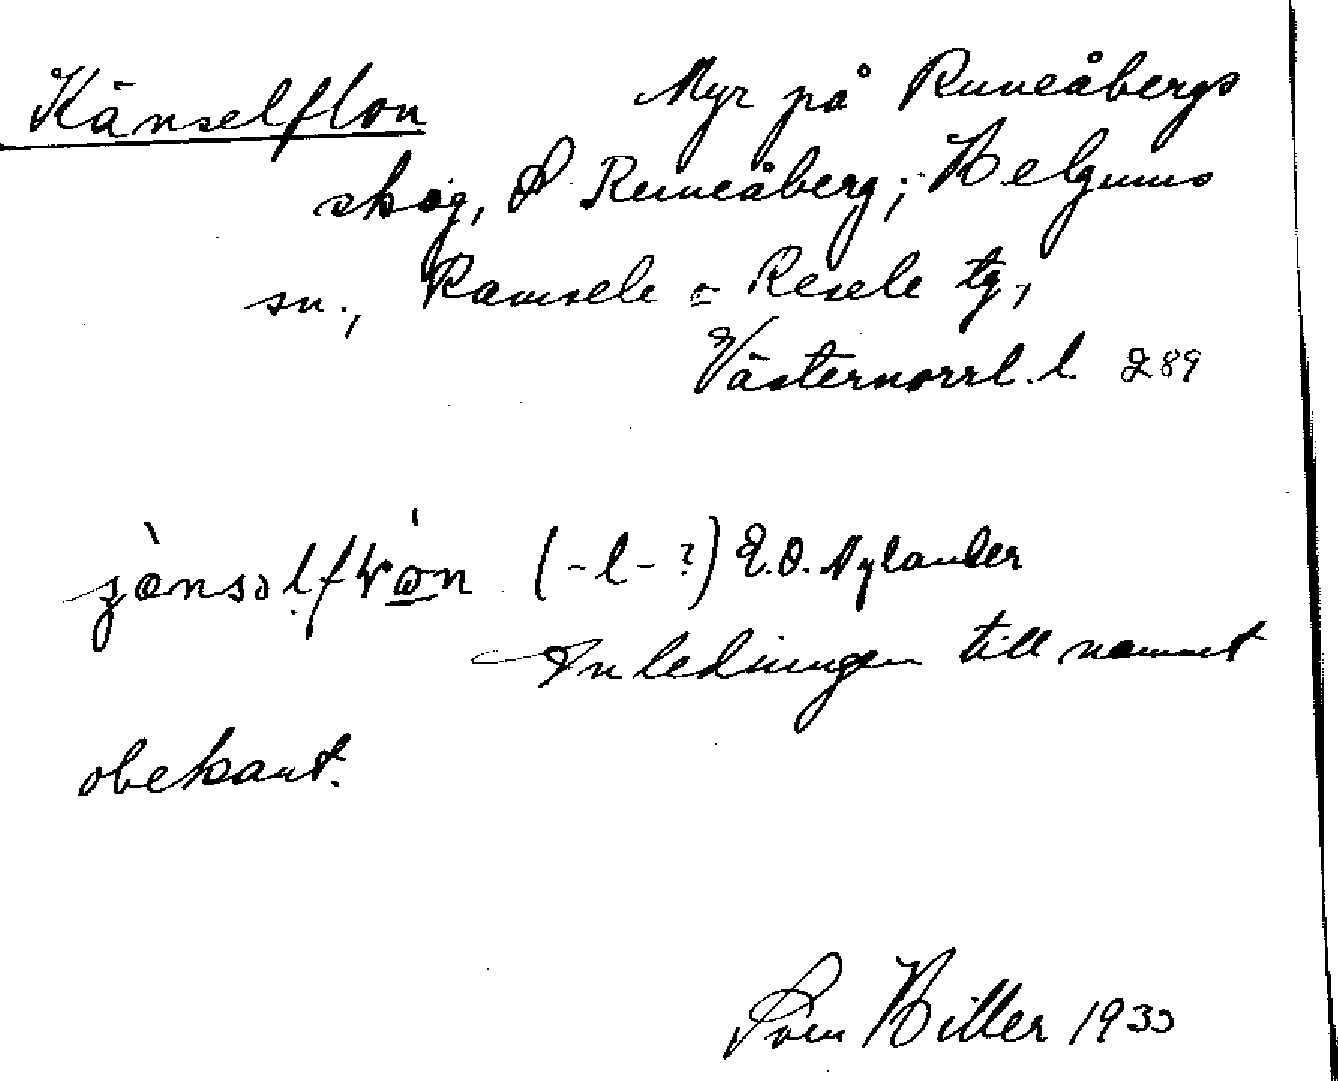 Känselflon Myr på Runeåbergs
skog, S Runeåberg; Helgums
sn., Ramsele o Resele tg,
Västernorrl. l. 289
(-l-?) E.O. Nylander
Anledningen till namnet
obekant.
Hiller 1933